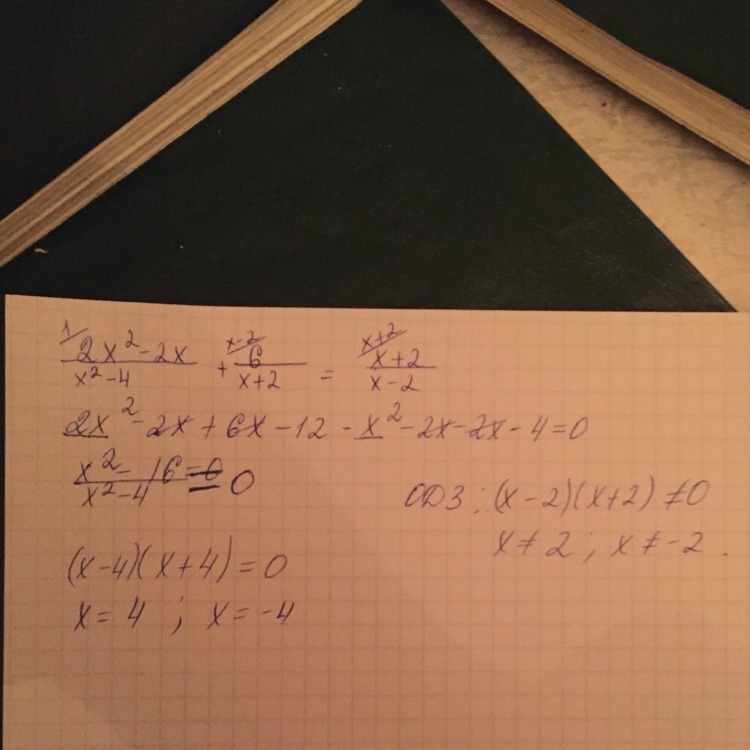 1/ 2x²-2x / x²-4 + x-2/ 6 / x+2 = x+2/ x+2 / x-2
2x²-2x+6x-12-x²-2x-2x-4=0
x²-16=0 / x²-4 = 0
ОДЗ: (x-2)(x+2)≠0
x≠2; x≠-2.
(x-4)(x+4)=0
x=4; x=-4